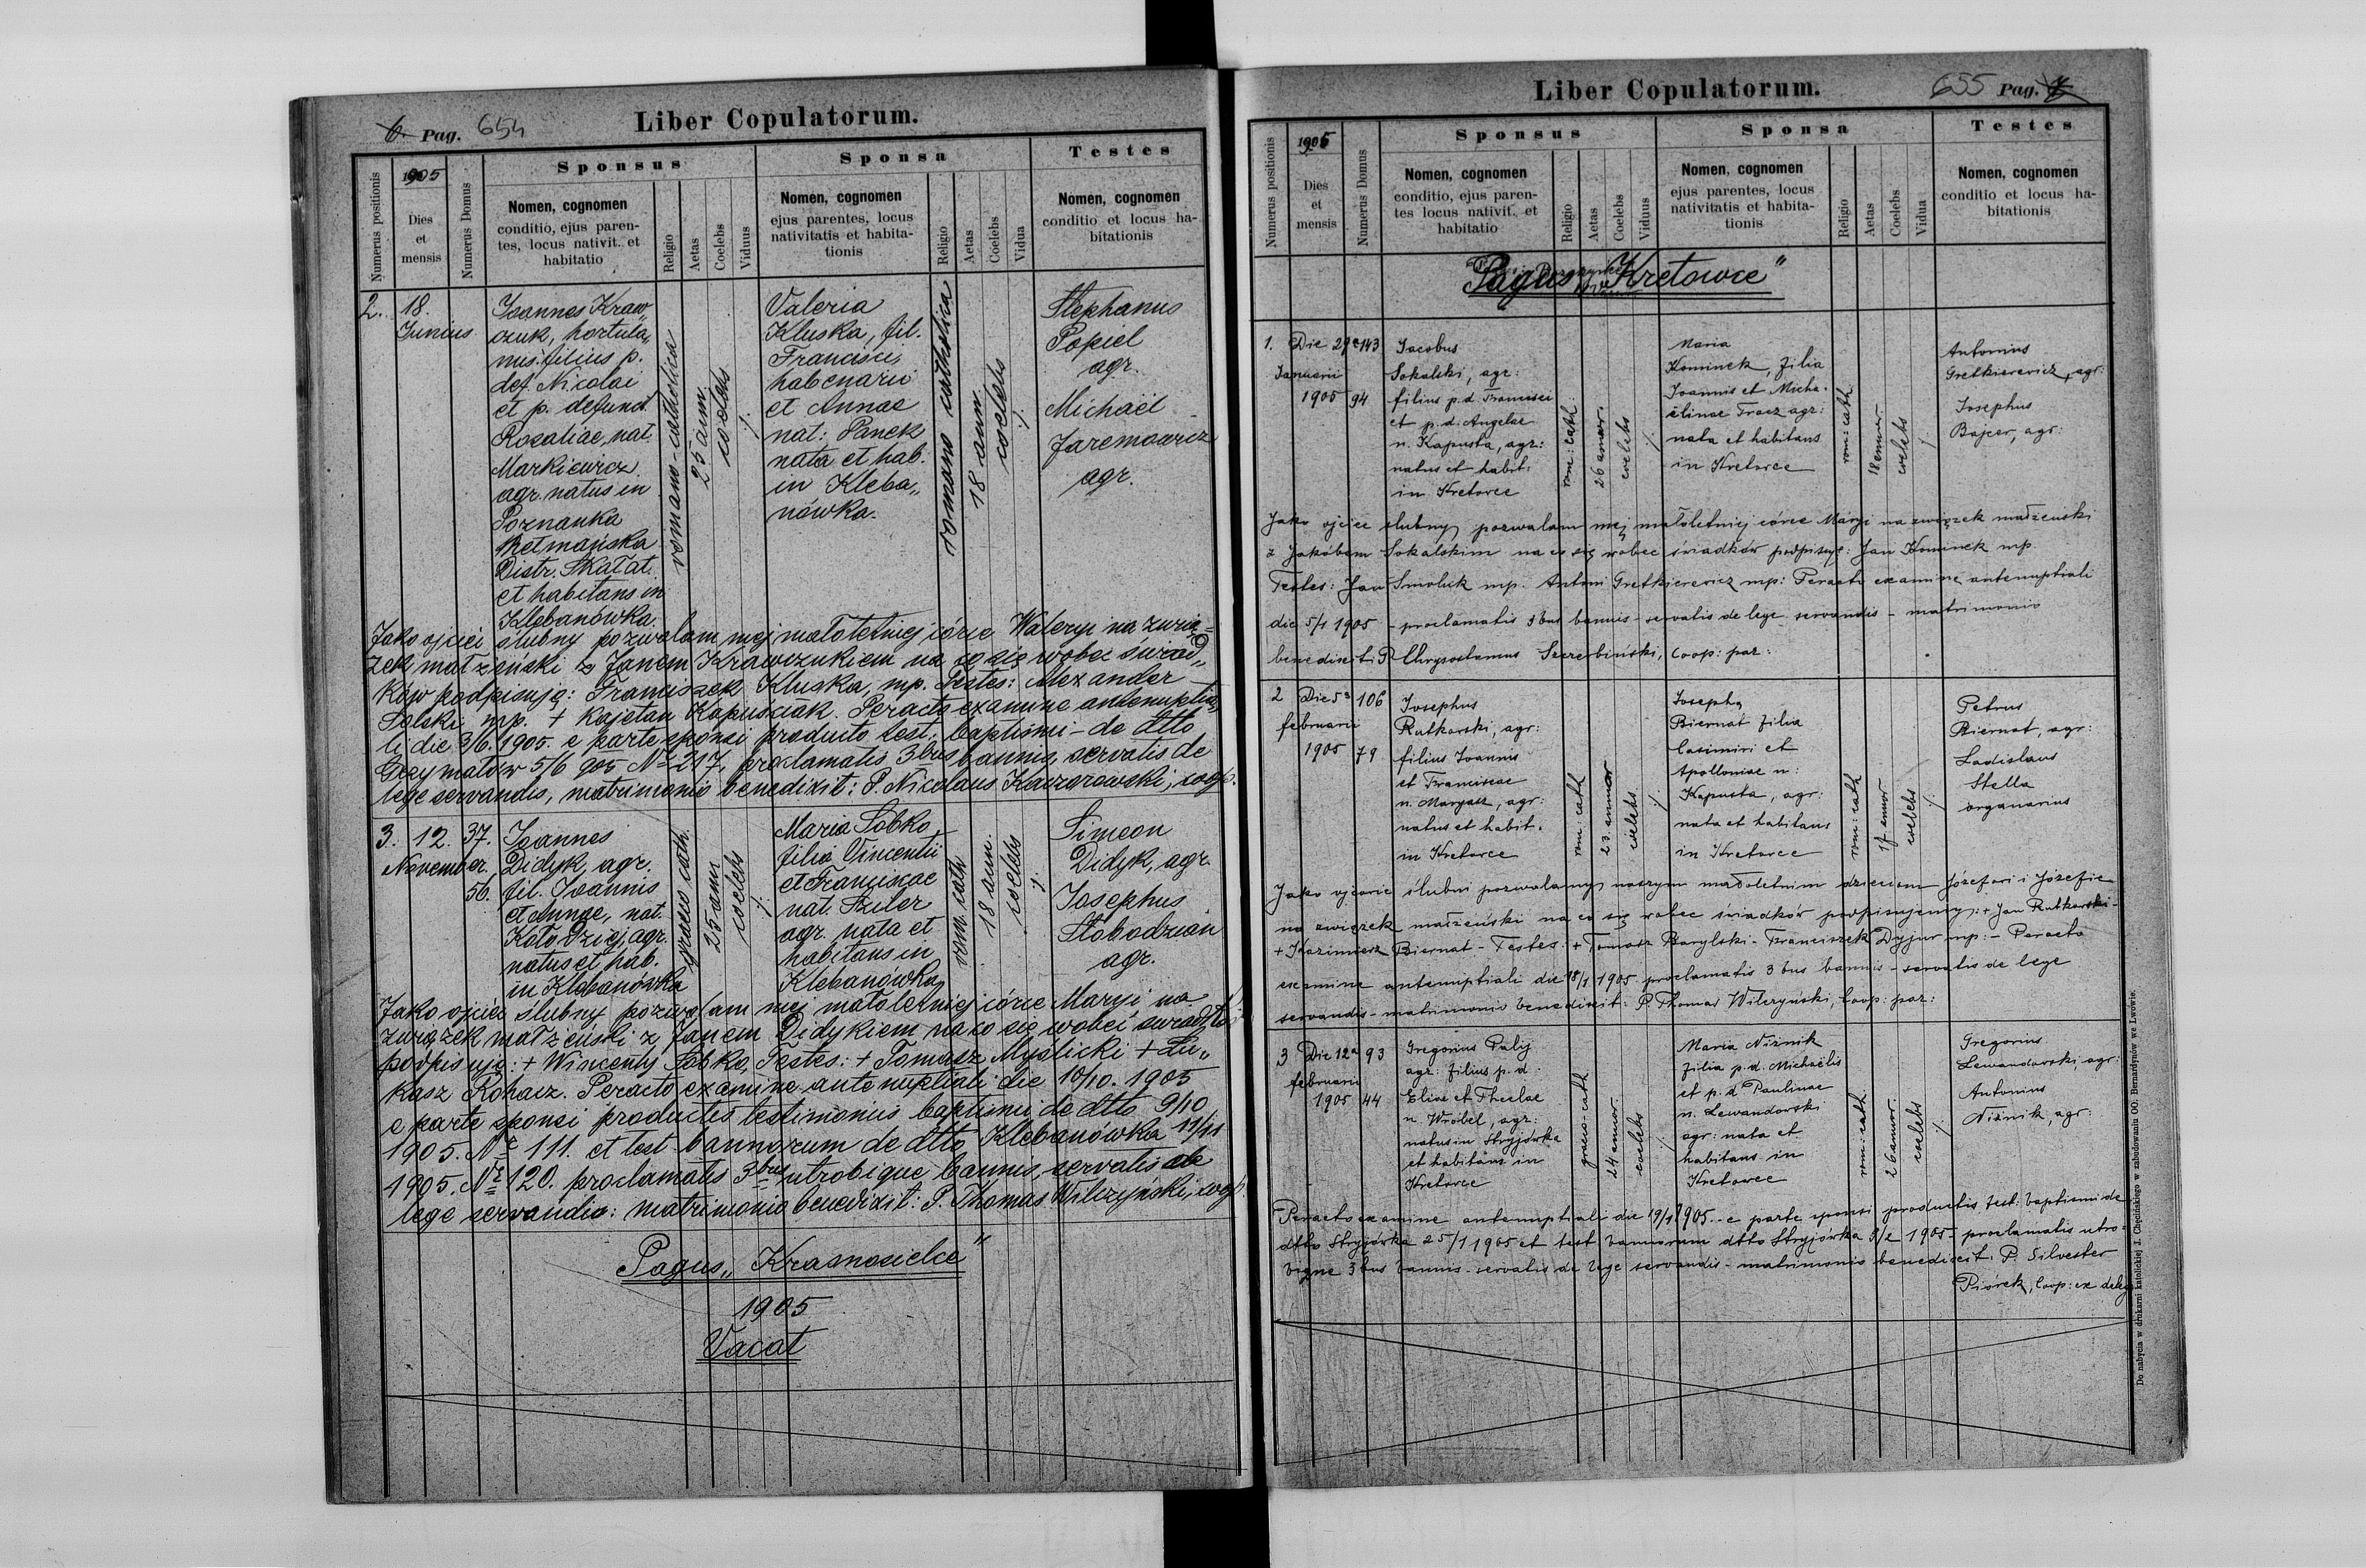 6. Pag. 654
Liber Copulatorum.
Numerus positionis
1905
Dies
et
mensis
Numerus Domus
Sponsus
Nomen, cognomen
conditio, ejus paren-
tes, locus nativit. et
habitatio
Religio
Aetas
Coelebs
Viduus
Sponsa
Nomen, cognomen
ejus parentes, locus
nativitatis et habita-
tionis
Religio
Aetas
Coelebs
Vidua
Testes
Nomen, cognomen
conditio et locus ha-
bitationis
2.
18.
Junius
Joannes Kraw„
czuk, hortula„
nus. filius p.
def. Nicolai
et p. defunct.
Rozaliae, nat.
Markiewicz
agr. natus in
Poznanka
hetmańska
Distr. Skałat.
et habitans in
Klebanówka.
romano-catholica
25 ann.
coelebs
Valeria
Kluska, fil.
Francisci,
habenarii
et Annae
nat: Panek
nata et hab.
in Kleba„
nówka.
romano catholica
18 ann.
coelebs
Stephanus
Popiel
agr.
Michaël
Jaremowicz
agr.
Jako ojciec ślubny pozwalam mej małoletniej córce Waleryi na zwią=
zek małżeński z Janem Krawczukiem na co się wobec świad„
ków podpisuję: Franciszek Kluska, mp. Testes: Alexander
Solski mp. + Kajetan Kapuściak. Peracto examine antenuptia„
li die 3/6. 1905. e parte sponsi producto test. baptismi - de dtto
Grzymałów 5/6 905 No 217, proclamatis 3bus bannis, servatis de
lege servandis, matrimonio benedixit: P. Nicolaus Kaczorowski, coop.
3.
12.
November.
37.
56.
Joannes
Didyk, agr.
fil. Joannis
et Annae, nat.
Kołodziej, agr.
natus et hab.
in Klebanówka
graeco cath.
25 ann.
coelebs
Maria Sobko,
filia Vincentii
et Franciscae
nat. Szeler
agr. nata et
habitans in
Klebanówka
rom. cath.
18 ann.
coelebs
Simeon
Didyk, agr.
Josephus
Słobodzian
agr.
Jako ojciec ślubny pozwalam mej małoletniej córce Maryi na
związek małżeński z Janem Didykiem na co się wobec świadków
podpisuję: + Wincenty Sobko, Testes: + Tomasz Myślicki + Łu„
kasz Kohacz. Peracto examine antenuptiali die 10/10. 1905
e parte sponsi productis testimoniis baptismi de dtto 9/10
1905. No 111. et test. bannorum de dtto Klebanówka 11/11
1905. No 120. proclamatis 3bus utrobique bannis, servatis de
lege servandis: matrimonio benedixit: P. Thomas Wilczyński, coop.
Pagus „Krasnosielce"
1905
Vacat
Liber Copulatorum.
655 Pag. 7
Numerus positionis
1905
Dies
et
mensis
Numerus Domus
Sponsus
Nomen, cognomen
conditio, ejus paren-
tes locus nativit. et
habitatio
Religio
Aetas
Coelebs
Viduus
Sponsa
Nomen, cognomen
ejus parentes, locus
nativitatis et habita-
tionis
Religio
Aetas
Coelebs
Vidua
Testes
Nomen, cognomen
conditio et locus ha-
bitationis
Pagus „Kretowce"
1.
Die 29a
Januarii
1905
143
94
Jacobus
Sokalski, agr:
filius p.d. Francisci
et p.d. Angelae
n. Kapusta, agr:
natus et habit:
in Kretowce
rom: cath.
26 annor.
coelebs
Maria
Kominek, filia
Joannis et Micha-
ëlinae Tracz agr:
nata et habitans
in Kretowce
rom: cath.
18 annor.
coelebs
Antonius
Gretkierewicz, agr:
Josephus
Bajcer, agr:
Jako ojciec ślubny pozwalam mej małoletniej córce Maryi na związek małżeński
z Jakóbem Sokalskim na co się wobec świadków podpisuję: Jan Kominek mp.
Testes: Jan Smoluk mp. Antoni Gretkierewicz mp: Peracto examine antenuptiali
die 5/1 1905 - proclamatis 3bus bannis - servatis de lege servandis - matrimonio
benedixit: P. Chrysostomus Szczerbiński, coop: par:
2
Die 5a
februarii
1905
106
79
Josephus
Rutkowski, agr:
filius Joannis
et Franciscae
n. Margasz, agr:
natus et habit.
in Kretowce
rom: cath
23 annor
coelebs
Josepha
Biernat filia
Casimiri et
Apolloniae n:
Kapusta, agr:
nata et habitans
in Kretowce
rom: cath
17 annor
coelebs
Petrus
Biernat, agr:
Ladislaus
Stella
organarius
Jako ojcowie ślubni pozwalamy naszym małoletnim dzieciom Józefowi i Józefie
na związek małżeński na co się wobec świadków podpisujemy: + Jan Rutkowski -
+ Kazimierz Biernat - Testes: + Tomasz Barylski - Franciszek Dyjur mp: - Peracto
examine antenuptiali die 18/1 1905 proclamatis 3bus bannis - servatis de lege
servandis - matrimonio benedixit: P. Thomas Wilczyński, Coop: par:
3
Die 12a
februarii
1905
93
44
Gregorius Palij
agr: filius p.d.
Eliae et Theclae
n. Wróbel, agr:
natus in Stryjówka
et habitans in
Kretowce
graeco-cath.
24 annor.
coelebs
Maria Niżnik
filia p.d. Michaëlis
et p.d. Paulinae
n. Lewandowski
agr: nata et
habitans in
Kretowce
rom: cath.
26 annor.
coelebs
Gregorius
Lewandowski, agr:
Antonius
Niżnik, agr:
Peracto examine antenuptiali die 19/1 1905 - e parte sponsi productis test: baptismi de
dtto Stryjówka 25/1 1905 et test bannorum dtto Stryjówka 9/2 1905 - proclamatis utro=
bique 3bus bannis - servatis de lege servandis - matrimonio benedixit. P. Silvester
Piórek, Coop: ex deleg
Do nabycia w drukarni katolickiej J. Chęcińskiego w zabudowaniu OO. Bernardynów we Lwowie.